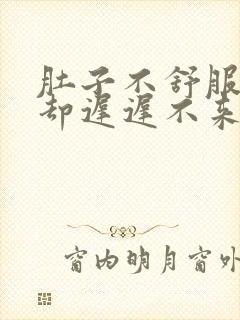 肚子不舒服
却迟迟不来
窗内明月窗外